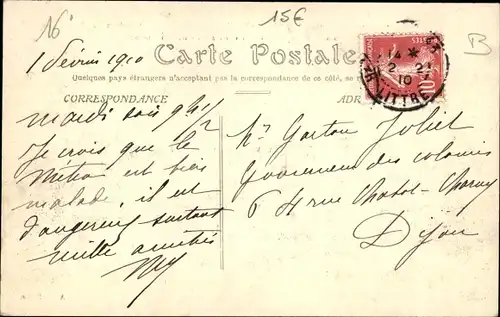 16
15€
B
1 Février 1910
Carte Postale
Quelques pays étrangers n'acceptant pas la correspondance de ce côté, se
CORRESPONDANCE
ADR
14 *
2 - 2
10
R. LITTRÉ
10
mardi soir 9h 1/2
Je crois que le
Métro est bien
malade, il est
dangereux surtout
mille amitiés
Mr Gaston Joliet
Gouverneur des colonies
64 rue Chabot-Charny
Dijon